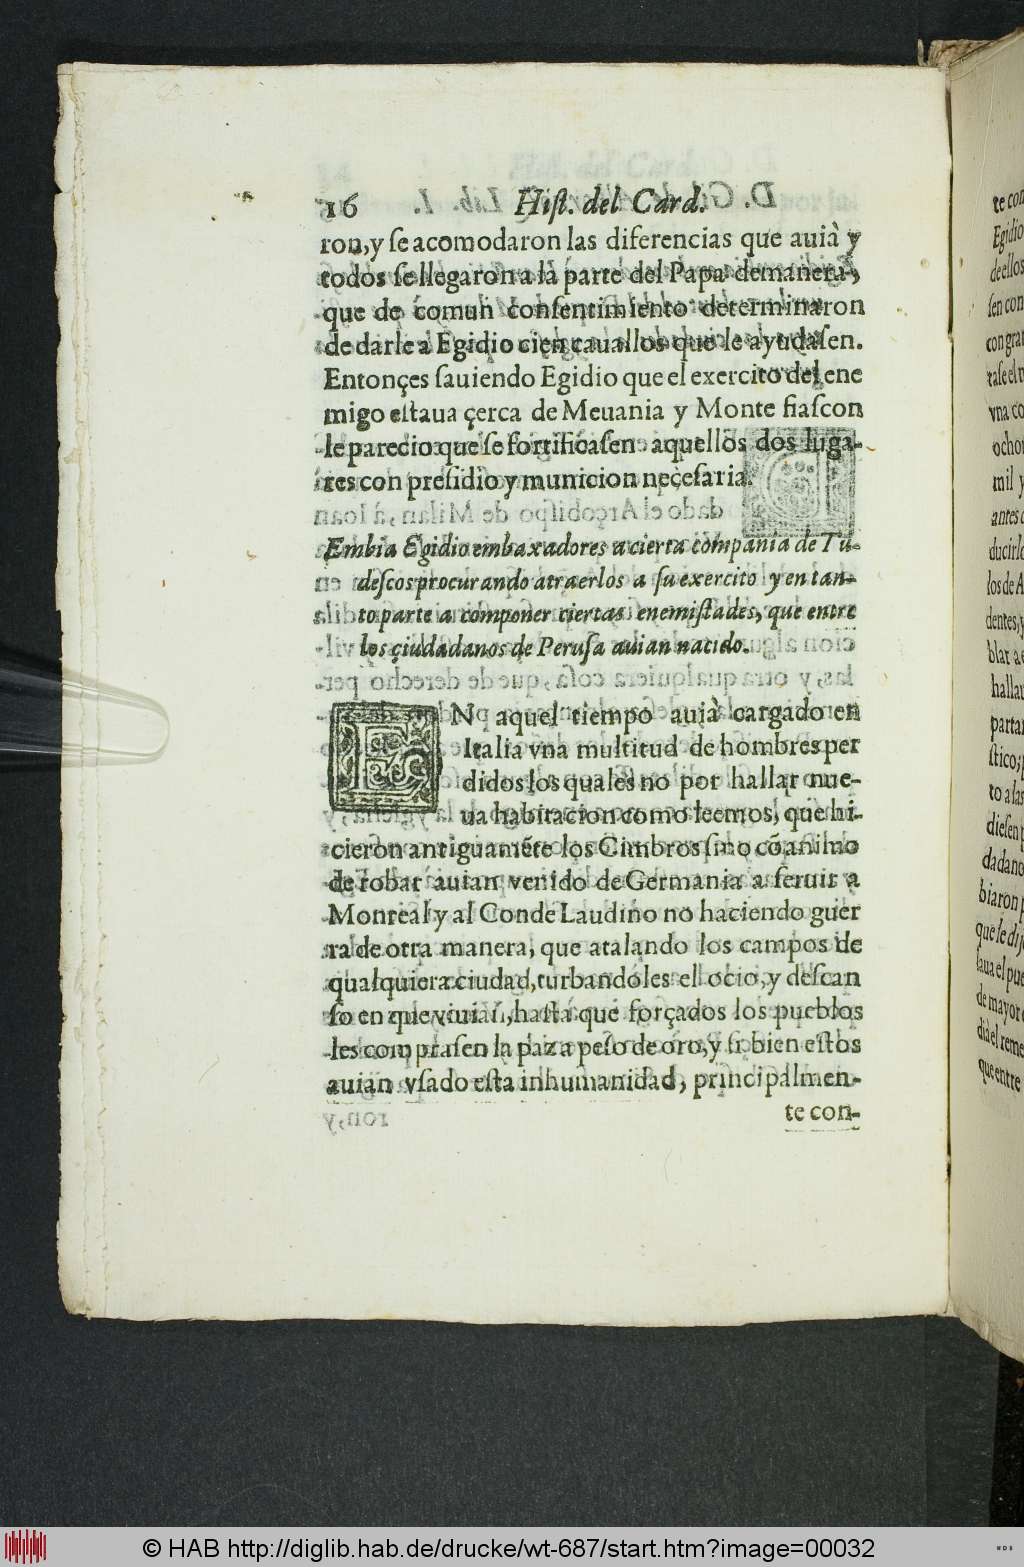 16 Hiſt. del Card.
ron, y ſe acomodaron las diferencias que auià y
todos ſe llegaron a la parte del Papa demanera,
que de comun conſentimiento determinaron
de darle a Egidio cien cauallos que le ayudaſen.
Entonçes ſauiendo Egidio que el exercito del ene
migo eſtaua çerca de Meuania y Monte fiaſcon
le parecio que ſe fortificaſen aquellos dos luga-
res con preſidio y municion neçeſaria.
Embia Egidio embaxadores a cierta compania de Tu-
deſcos procurando atraerlos a ſu exercito y en tan-
to parte a componer ciertas enemiſtades, que entre
los çiudadanos de Peruſa auian nacido.
EN aquel tiempo auià cargado en
Italia vna multitud de hombres per
didos los quales no por hallar nue-
ua habitacion como leemos, que hi-
cieron antiguamẽte los Cimbros ſino cõ animo
de robar auian venido de Germania a ſeruir a
Monreal y al Conde Laudino no haciendo guer
ra de otra manera, que atalando los campos de
qualquiera ciudad, turbandóles el ocio, y deſcan
ſo en que viuian, haſta que forçados los pueblos
les compraſen la paz a peſo de oro, y ſi bien eſtos
auian vſado eſta inhumanidad, principalmen-
te con-
te con
Egidio
de ellos
ſen con
con gran
vna co
mil y
antes
ducirlo
los de A
dentes, y
blar a
hallar
partar
ſtico;
to a las
dieſen
dadano
biaron
que le di
ſaua el pue
de mayor
dia el reme
que entre
© HAB http://diglib.hab.de/drucke/wt-687/start.htm?image=00032